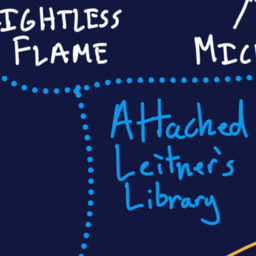 IGHTLESS
FLAME
MIC
Attached
Leitner's
Library